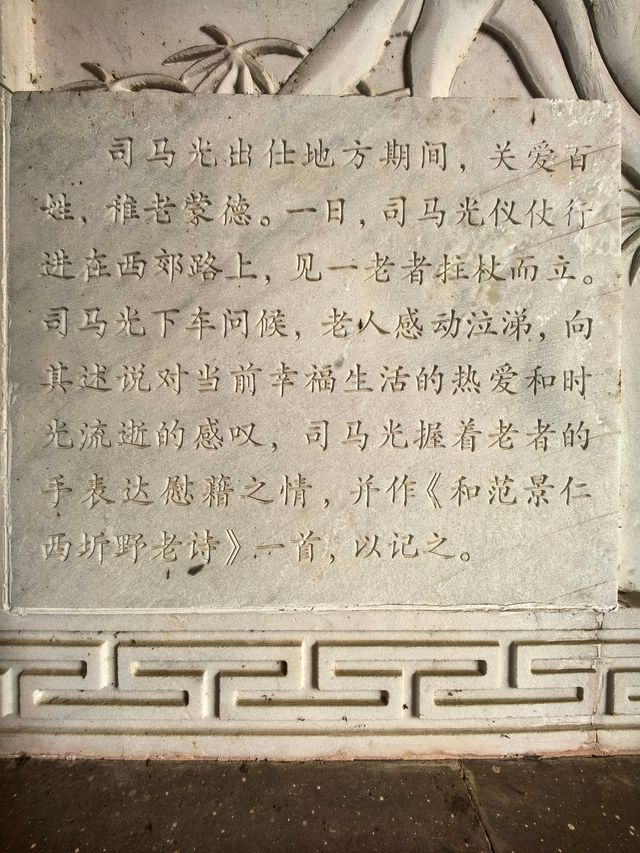 司马光出仕地方期间，关爱百
姓，稚老蒙德。一日，司马光仪仗行
进在西郊路上，见一老者拄杖而立。
司马光下车问候，老人感动泣涕，向
其述说对当前幸福生活的热爱和时
光流逝的感叹，司马光握着老者的
手表达慰藉之情，并作《和范景仁
西圻野老诗》一首，以记之。